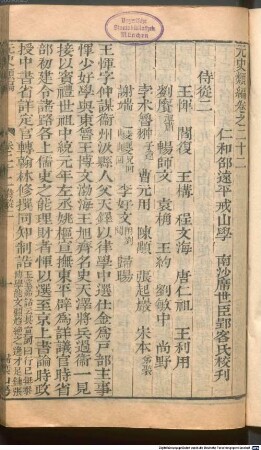 元史類編卷之二十二
仁和邵遠平戒山學
南沙席世臣郢客氏校刊
侍從二
王惲 閻復 王構 程文海 唐仁祖 王利用
劉賡 暢師文 袁桷 王約 劉敏中 尚野
孛朮魯翀 曹元用 陳顥 張起巖 宋本
謝端 李好文 歸暘
王惲字仲謀衛州汲縣人父天鐸以律學中選仕金為戶部主事
惲少好學與東魯王博文渤海王旭齊名史天澤將兵過衛一見
接以賓禮世祖中統元年左丞姚樞宣撫東平辟為詳議官時省
部初建令諸路各上儒吏之能理財者惲以選至京上書論時政
授中書省詳定官轉翰林修撰同知制誥
Bayerische Staatsbibliothek München